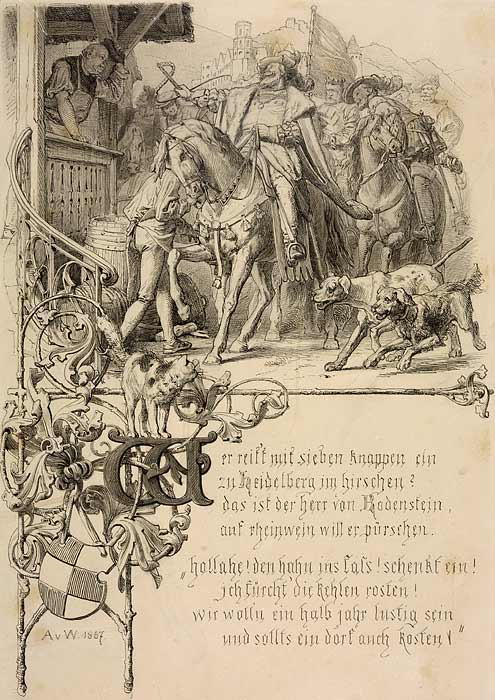 Wer reitt mit sieben knappen ein
zu Heidelberg im hirschen?
das ist der herr von Rodenstein,
auf rheinwein will er pürschen.
„hollahe! den hahn ins faſs! schenkt ein!
ich fürcht' die kehlen rosten!
wir wolln ein halb jahr lustig sein
und sollts ein dorf auch kosten!"
A v W. 1867